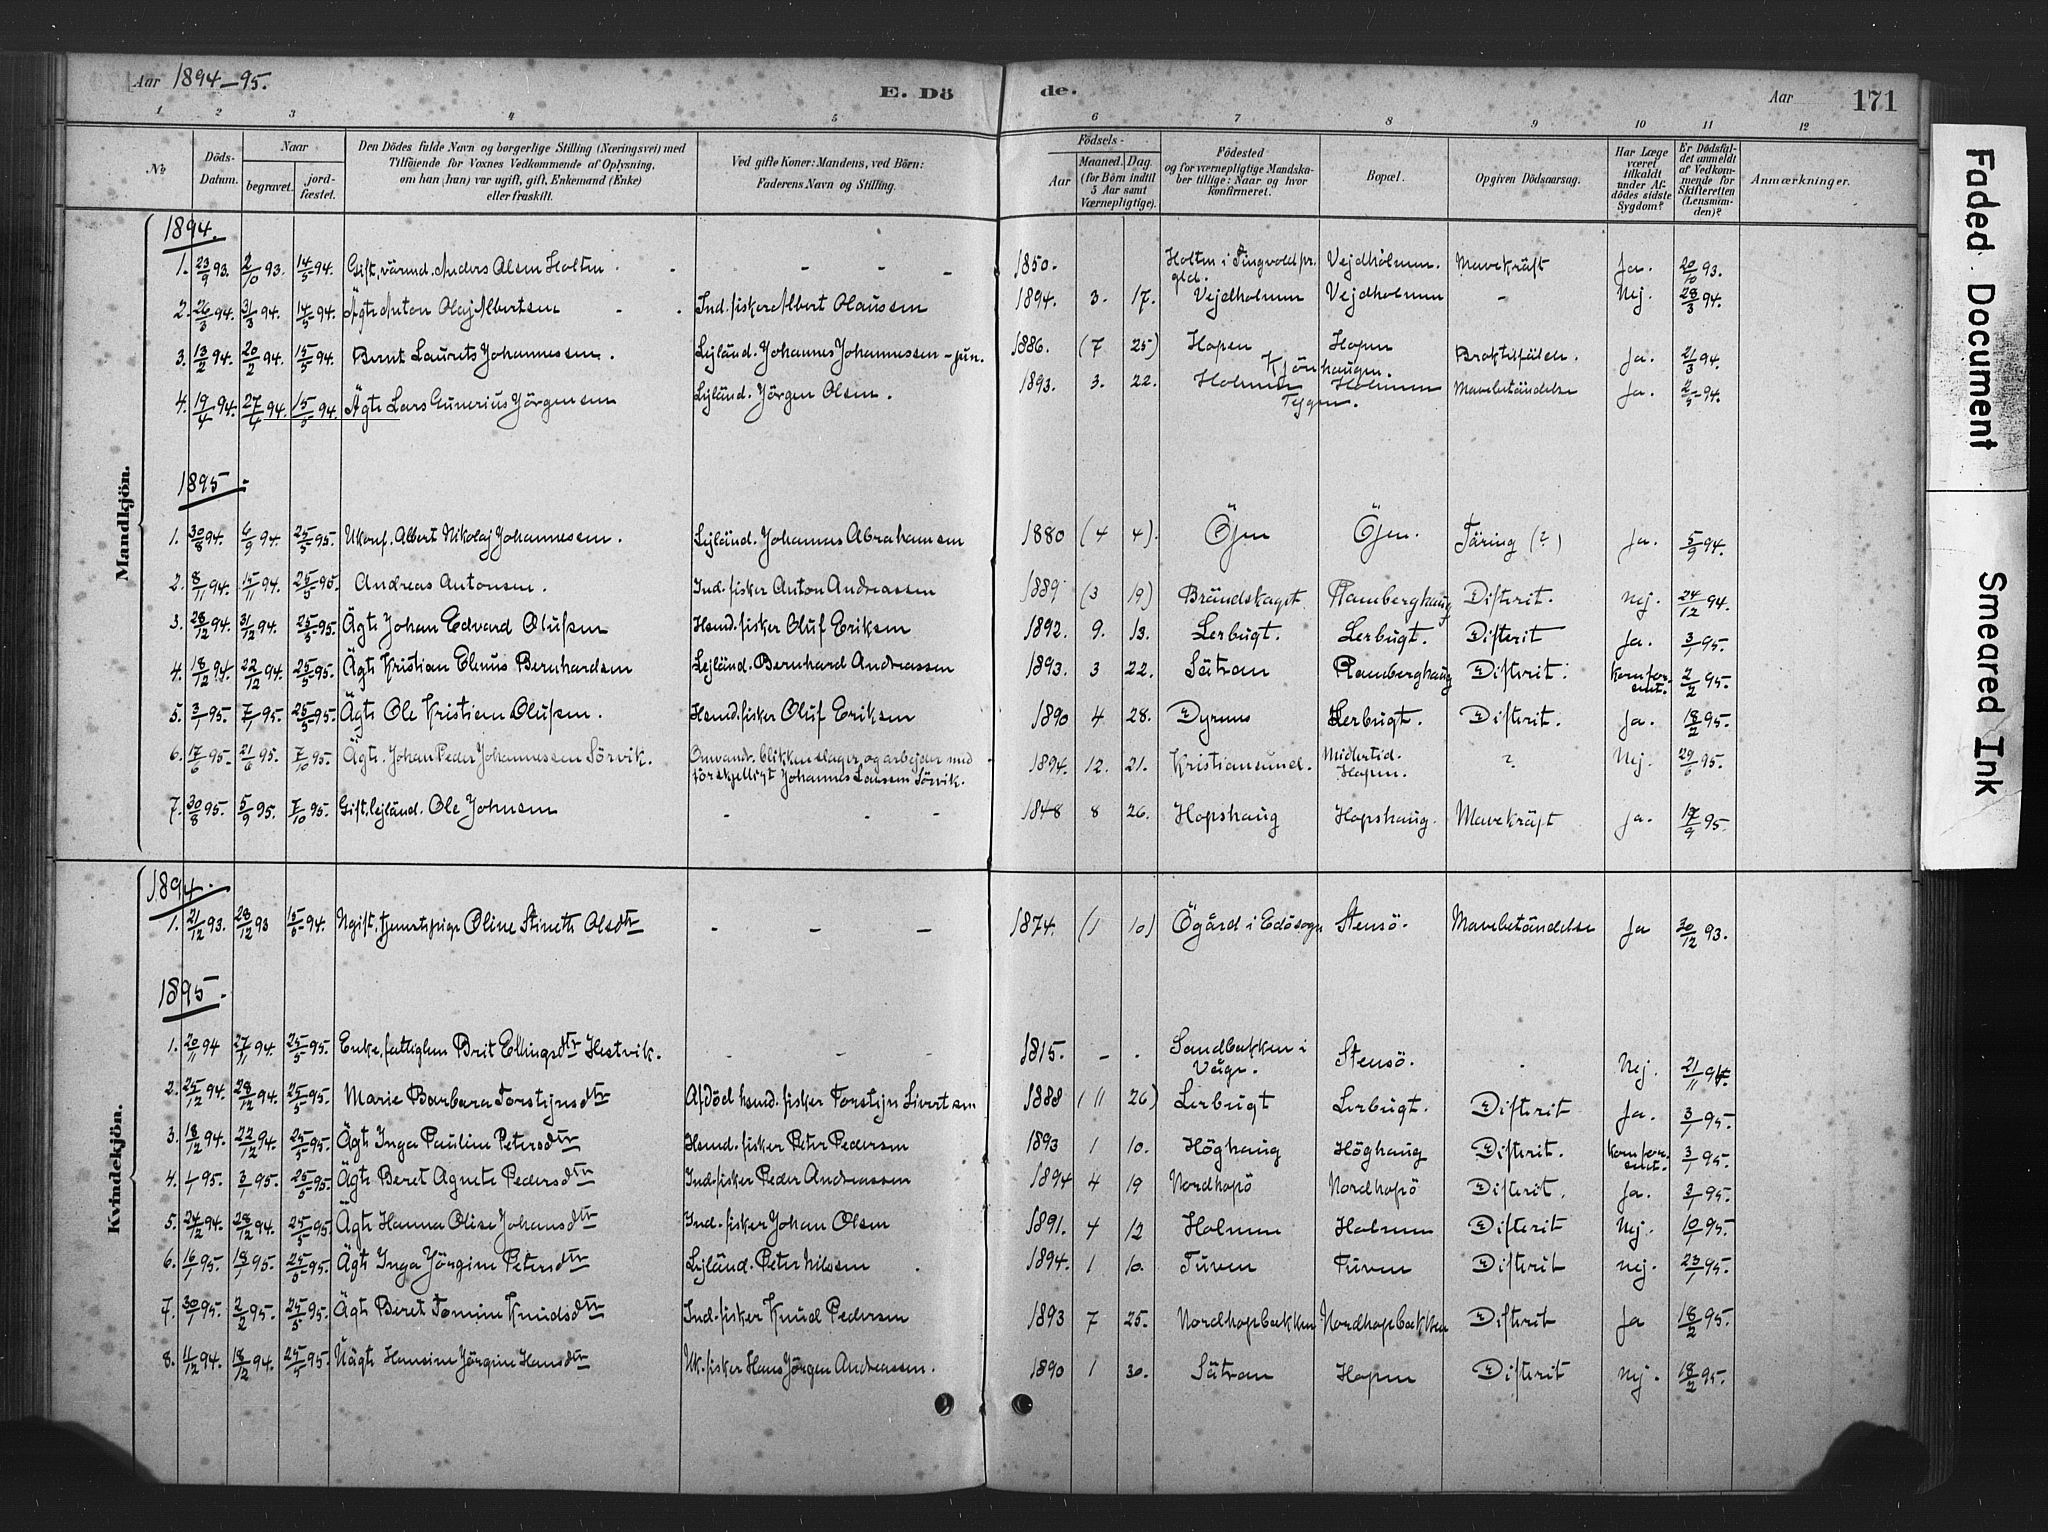 Aar 1894-95.
E. Dö
de.
Aar
171
1 2 3 4 5 6 7 8 9 10 11 12
No
Döds-Datum.
Naar
begravet.
jord-fæstet.
Den Dödes fulde Navn og borgerlige Stilling (Næringsvei) med
Tilföiende for Voxnes Vedkommende af Oplysning,
om han (hun) var ugift, gift, Enkemand (Enke)
eller fraskilt.
Ved gifte Koner: Mandens, ved Börn:
Faderens Navn og Stilling.
Födsels-
Aar
Maaned.
Dag.
(for Börn indtil
5 Aar samt
Værnepligtige).
Födested
og for værnepligtige Mandska-
ber tillige: Naar og hvor
Konfirmeret.
Bopæl.
Opgiven Dödsaarsag.
Har Læge
været
tilkaldt
under Af-
dödes sidste
Sygdom?
Er Dödsfal-
det anmeldt
af Vedkom-
mende for
Skifteretten
(Lensman-
den)?
Anmærkninger.
Mandkjön.
1894.
1. 23/9 93. 2/10 93. 14/5 94. Gift, Anders Olsen Holten - - - - 1850. Holten i Tingvold prgld. Vejdholmen. Mavekräft Ja. 20/10 93.
2. 26/3 94. 31/3 94. 14/5 94. Ägte Anton Olaj Albertsen Ind. fisker Albert Olaussen 1894. 3. 17. Vejdholmen Vejdholmen - Nej. 28/3 94.
3. 13/2 94. 20/2 94. 15/5 94. Bernt Laurits Johannessen. Lejländ. Johannes Johannessen - jun. 1886. (7 25) Hopen Hopen Kjönhaugen. Ja. 21/3 94.
4. 19/4 94. 27/4 94. 15/5 94. Ägte Lars Gunerius Jörgensen Lejländ. Jörgen Olsen. 1893. 3. 22. Holmen Holmen Tejgen. Mavebetändelse Ja. 2/5 94.
1895.
1. 30/8 94. 6/9 94. 25/5 95. Ukonf. Albert Nikolaj Johannessen. Lejländ. Johannes Abrahamsen 1880 (4 4). Öjen Öjen. Täring (?) Ja. 5/9 94.
2. 8/11 94. 15/11 94. 25/5 95. Andreas Antonsen. Ind. fisker Anton Andreassen 1889 (3 19) Brändskaget. Ramberghaug Difterit. Nej. 24/12 94.
3. 28/12 94. 31/12 94. 25/5 95. Ägte Johan Edvard Olufsen Hsmd. fisker Oluf Eriksen 1892. 9. 13. Lerbugt. Lerbugt. Difterit Ja. 3/1 95.
4. 18/12 94. 22/12 94. 25/5 95. Ägte Kristian Elnus Bernhardsen Lejländ. Bernhard Andreassen 1893. 3 22. Sätran Ramberghaug Difterit. Kom for sent. 2/2 95.
5. 3/1 95. 7/1 95. 25/5 95. Ägte Ole Kristian Olufsen. Hsmd. fisker Oluf Eriksen 1890 4 28. Dyrnes Lerbugt. Difterit. Ja. 18/2 95.
6. 17/6 95. 21/6 95. 7/10 95. Ägte. Johan Peder Johannessen Sörvik. Omvandr. blikkenslager og arbejder med forskelligt Johannes Larssen Sörvik. 1894. 12. 21. Kristiansund. Midlertid. Hopen. ? Nej. 29/6 95.
7. 30/8 95. 5/9 95. 7/10 95. Gift, lejländ. Ole Johnsen - - - 1848 8 26. Hopshaug Hopshaug. Mavekräft Ja. 17/9 95.
Kvindekjön.
1894.
1. 21/12 93. 28/12 93 15/5 94. Ugift, tjenestepige Oline Stineth Olsdtr - - - 1874. (1 10) Ögård i Edösogn Stensö. Mavebetändelse Ja 30/12 93.
1895.
1. 20/11 94 27/11 94. 25/5 95. Enke, fattiglem Brit Ellingsdtr Hestvik. - - - 1815. - - Sandbakken i Våge. Stensö. - Nej. 21/11 94.
2. 25/12 94. 28/12 94. 25/5 95. Marie Barbara Torstejnsdtr Afdöd hsmd. fisker Torstejn Sivertsen 1888 (11 26) Lerbugt Lerbugt. Difterit Ja. 3/1 95.
3. 18/12 94. 22/12 94. 25/5 95. Ägte Inga Pauline Petersdtr Hsmd. fisker Peter Pedersen 1893 1 10. Höghaug Höghaug Difterit. Kom for sent. 3/1 95.
4. 1/1 95. 3/1 95. 25/5 95. Ägte Beret Agnete Pedersdtr Ind. fisker Peder Andreassen 1894 4 19 Nordhopö Nordhopö Difterit. Ja. 3/1 95.
5. 24/12 94. 28/12 94. 25/5 95. Ägte Hanna Olise Johansdtr Ind. fisker Johan Olsen 1891. 4 12 Holmen Holmen Difterit Nej. 10/1 95.
6. 16/1 95. 18/1 95. 25/5 95. Ägte Inga Jörgine Petersdtr Lejländ. Peter Nilssen 1894. 1 10. Tuven Tuven Difterit nej. 23/1 95.
7. 30/1 95. 2/2 95. 25/5 95. Ägte Beret Tomine Knudsdtr Ind. fisker Knud Pedersen 1893 7 25. Nordhopbakken Nordhopbakken Difterit Ja 18/2 95.
8. 11/12 94. 18/12 94. 25/5 95. Uägte Hansine Jörgine Hansdtr Uk. fisker Hans Jörgen Andreassen. 1890 1 30. Sätran Hopen Difterit Nej. 18/2 95.
Faded Document
Smeared Ink